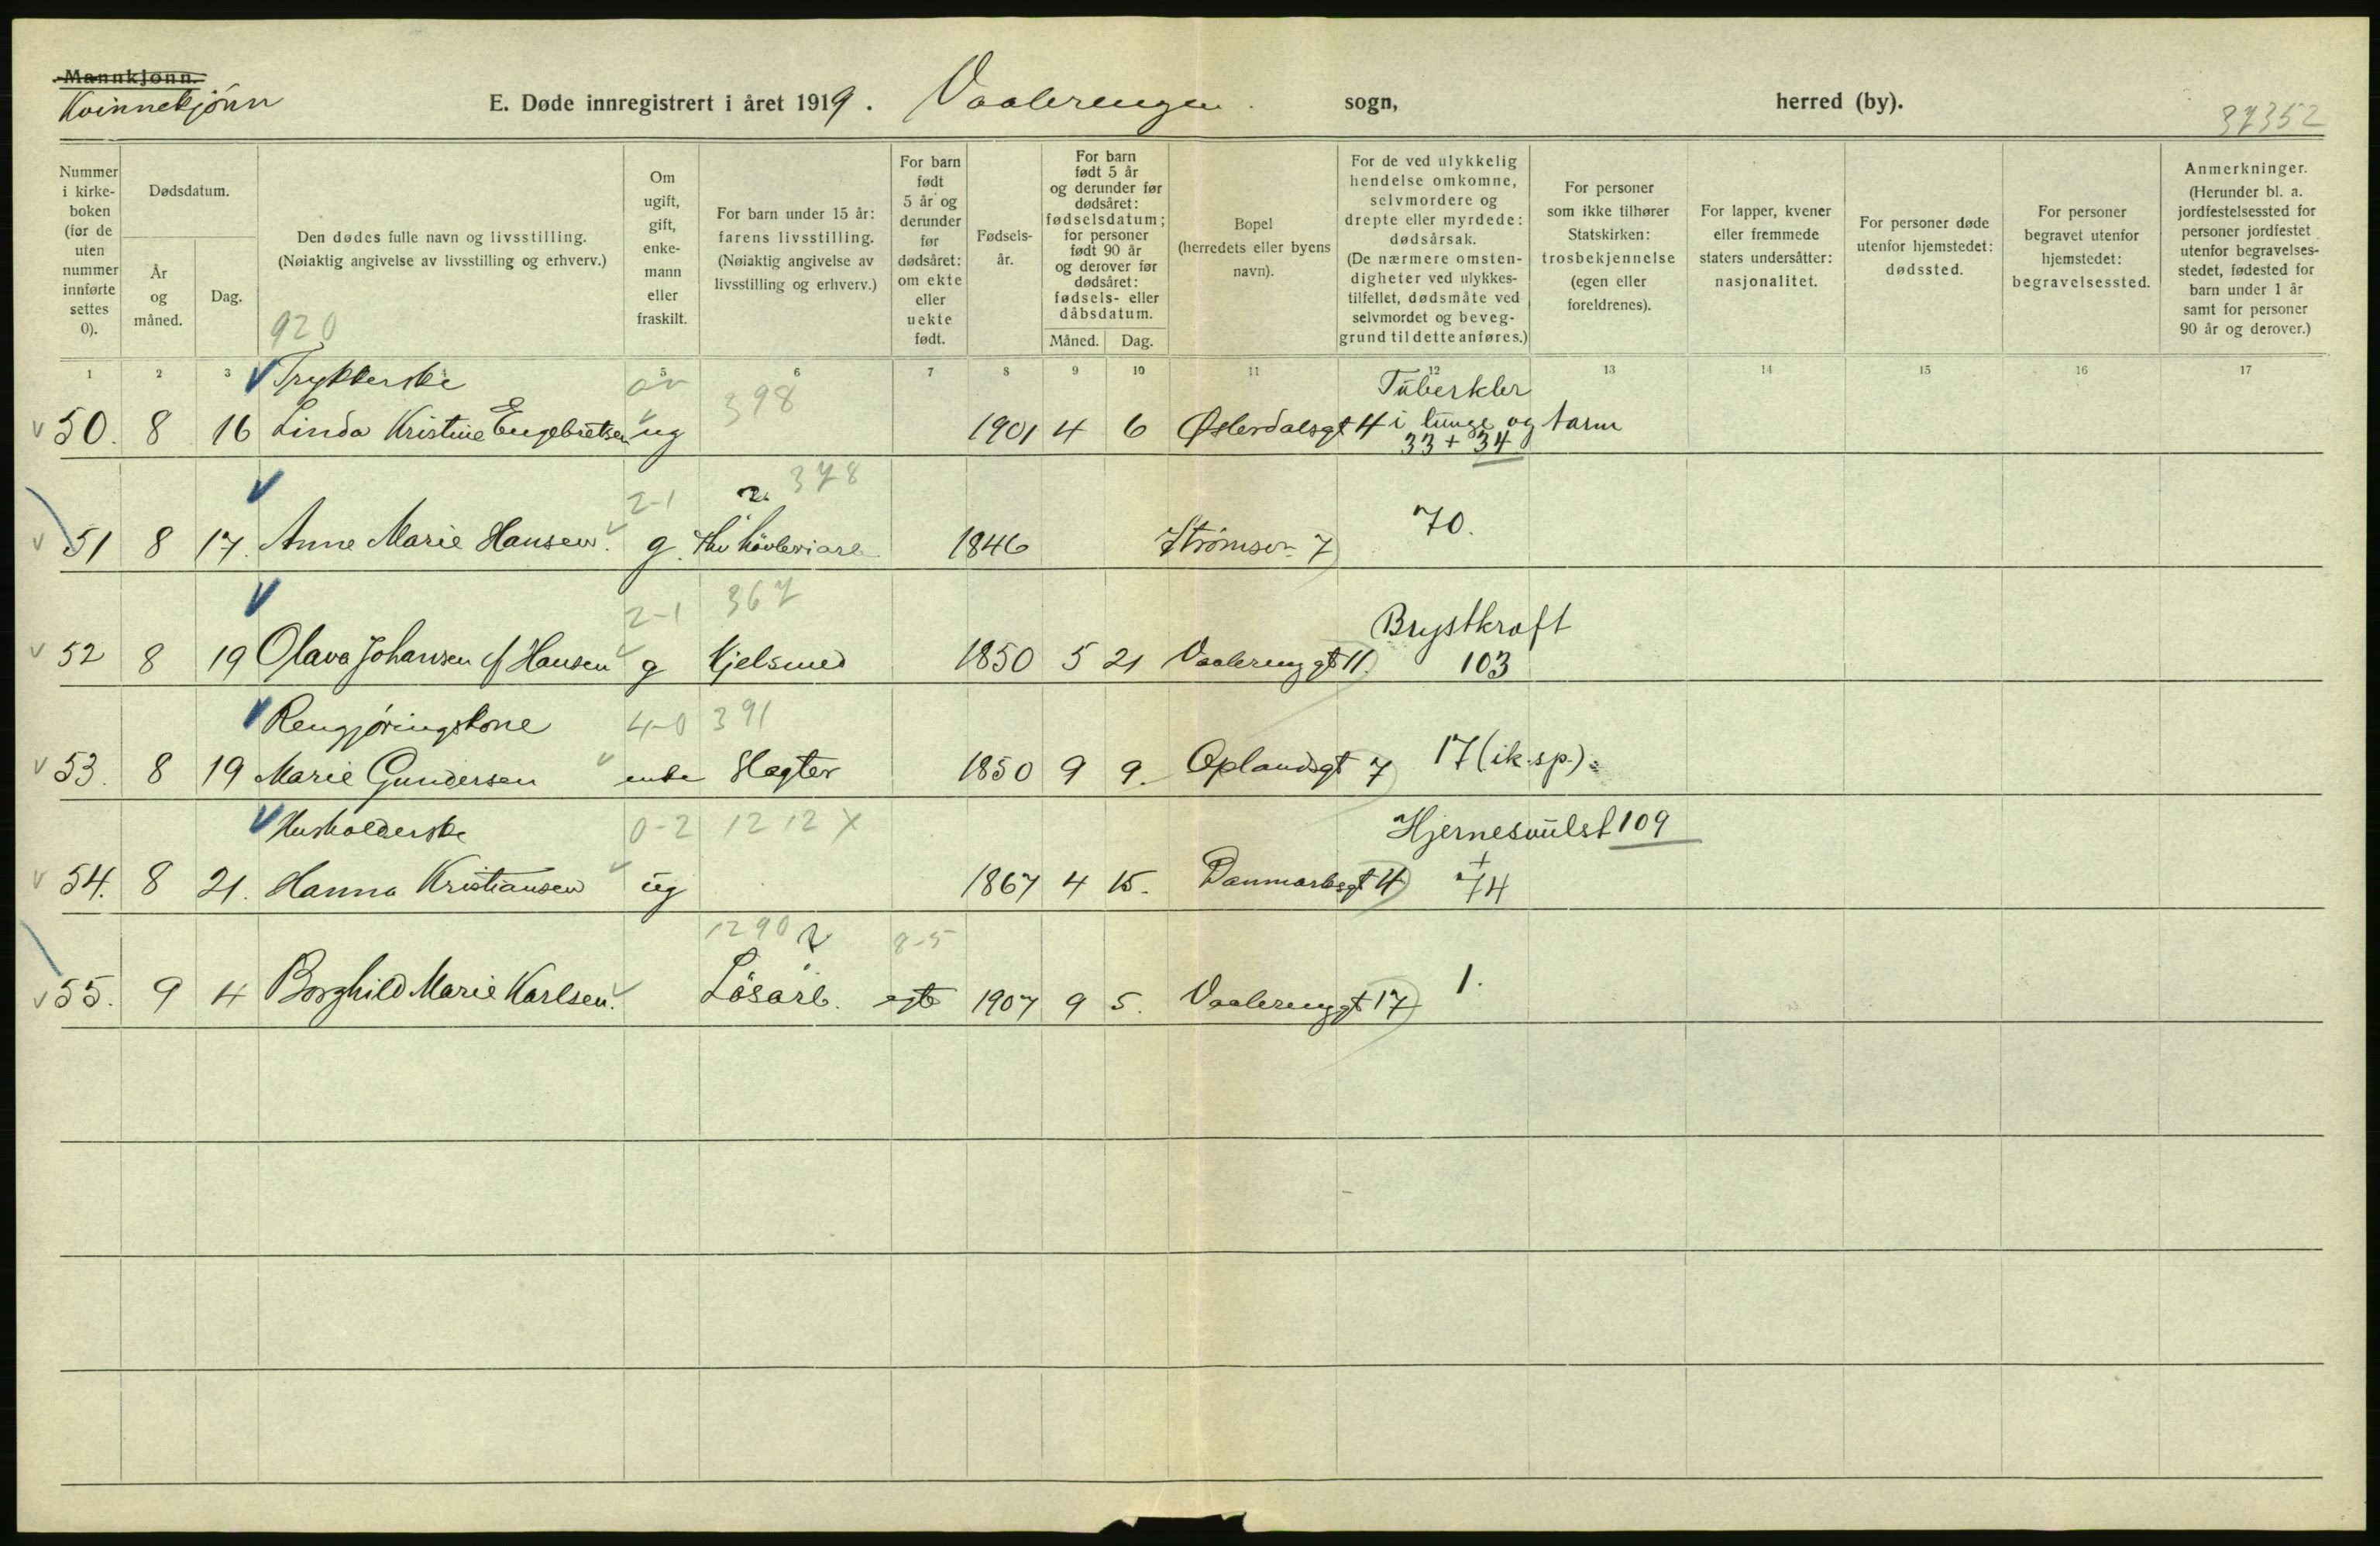 Mannkjønn.
Kvinnekjønn
E. Døde innregistrert i året 1919. Vaalerengen sogn, herred (by).
37352
Nummer i kirke-boken (for de uten nummer innførte settes 0).
Dødsdatum.
År og måned.
Dag.
Den dødes fulle navn og livsstilling. (Nøiaktig angivelse av livsstilling og erhverv.)
Om ugift, gift, enke-mann eller fraskilt.
For barn under 15 år: farens livsstilling. (Nøiaktig angivelse av livsstilling og erhverv.)
For barn født 5 år og derunder før dødsåret: om ekte eller uekte født.
Fødsels-år.
For barn født 5 år og derunder før dødsåret: fødselsdatum; for personer født 90 år og derover før dødsåret: fødsels- eller dåbsdatum.
Måned. Dag.
Bopel (herredets eller byens navn).
For de ved ulykkelig hendelse omkomne, selvmordere og drepte eller myrdede: dødsårsak. (De nærmere omsten-digheter ved ulykkes-tilfellet, dødsmåte ved selvmordet og beveg-grund til dette anføres.)
For personer som ikke tilhører Statskirken: trosbekjennelse (egen eller foreldrenes).
For lapper, kvener eller fremmede staters undersåtter: nasjonalitet.
For personer døde utenfor hjemstedet: dødssted.
For personer begravet utenfor hjemstedet: begravelsessted.
Anmerkninger. (Herunder bl. a. jordfestelsessted for personer jordfestet utenfor begravelses-stedet, fødested for barn under 1 år samt for personer 90 år og derover.)
920
1 2 3 5 6 7 8 9 10 11 12 13 14 15 16 17
Trykkerske 398 Tuberkler
50. 8 16 Linda Kristine Engebretsen ug 1901 4 6 Østerdalsgt 4 i lunge og tarm
33 + 34
2-1 378
51 8 17. Anne Marie Hansen g. 1846 7 70.
2-1 367 Brystkraft
52 8 19 Olava Johansen f Hansen g Kjelsmed 1850 5 21 Vaalerenggt 11 103
Rengjøringskone 4-0 391
53. 8 19 Marie Gundersen enke Slagter 1850 9 9. Oplandsgt 7 17 (ik.sp.)
Husholderske 0-2 1212 X Hjernesvulst 109
54. 8 21. Hanna Kristiansen ug 1867 4 15. Danmarksgt 4 + 74
1290 8-5
55. 9 4 Borghild Marie Karlsen. Løsarb. egte 1907 9 5. Vaalerenggt 17 1.